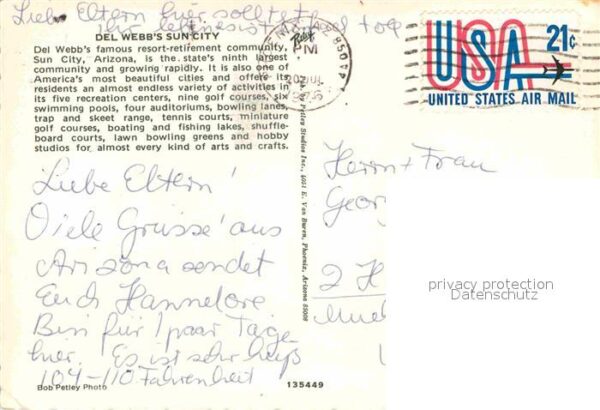 Liebe Eltern hier solltet
DEL WEBB'S SUN CITY
Del Webb's famous resort-retirement community,
Sun City, Arizona, is the state's ninth largest
community and growing rapidly. It is also one of
America's most beautiful cities and offers its
residents an almost endless variety of activities in
its five recreation centers, nine golf courses, six
swimming pools, four auditoriums, bowling lanes,
trap and skeet range, tennis courts, miniature
golf courses, boating and fishing lakes, shuffle-
board courts, lawn bowling greens and hobby
studios for almost every kind of arts and crafts.
Liebe Eltern!
Viele Grüsse aus
Arizona sendet
Euch Hannelore
Bin für 1 paar Tage
hier. Es ist sehr heiß
104-110 Fahrenheit
Bob Petley Photo
135449
Pub. by Petley Studios Inc., 4051 E. Van Buren, Phoenix, Arizona 85008
PM
USA 21c
UNITED STATES AIR MAIL
Herrn + Frau
Georg
2 H
privacy protection
Datenschutz